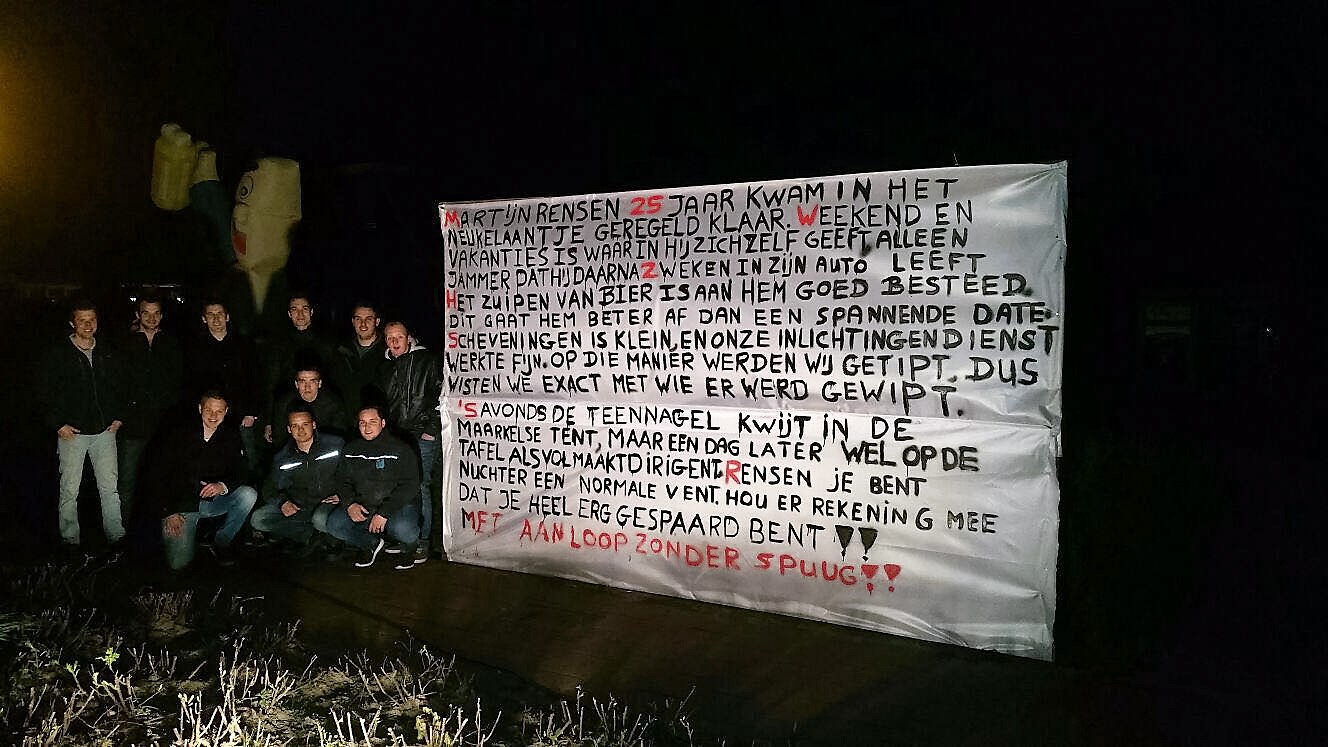 MARTIJN RENSEN 25 JAAR KWAM IN HET
NEUKELAANTJE GEREGELD KLAAR. WEEKEND EN
VAKANTIES IS WAAR IN HIJ ZICHZELF GEEFT ALLEEN
JAMMER DAT HIJ DAARNA 2 WEKEN IN ZIJN AUTO LEEFT
HET ZUIPEN VAN BIER IS AAN HEM GOED BESTEED.
DIT GAAT HEM BETER AF DAN EEN SPANNENDE DATE.
SCHEVENINGEN IS KLEIN, EN ONZE INLICHTINGENDIENST
WERKTE FIJN. OP DIE MANIER WERDEN WIJ GETIPT. DUS
WISTEN WE EXACT MET WIE ER WERD GEWIPT.
'S AVONDS DE TEENNAGEL KWIJT IN DE
MAARKELSE TENT, MAAR EEN DAG LATER WEL OP DE
TAFEL ALS VOLMAAKT DIRIGENT. RENSEN JE BENT
NUCHTER EEN NORMALE VENT. HOU ER REKENING MEE
DAT JE HEEL ERG GESPAARD BENT !!
MET AANLOOP ZONDER SPUUG!!